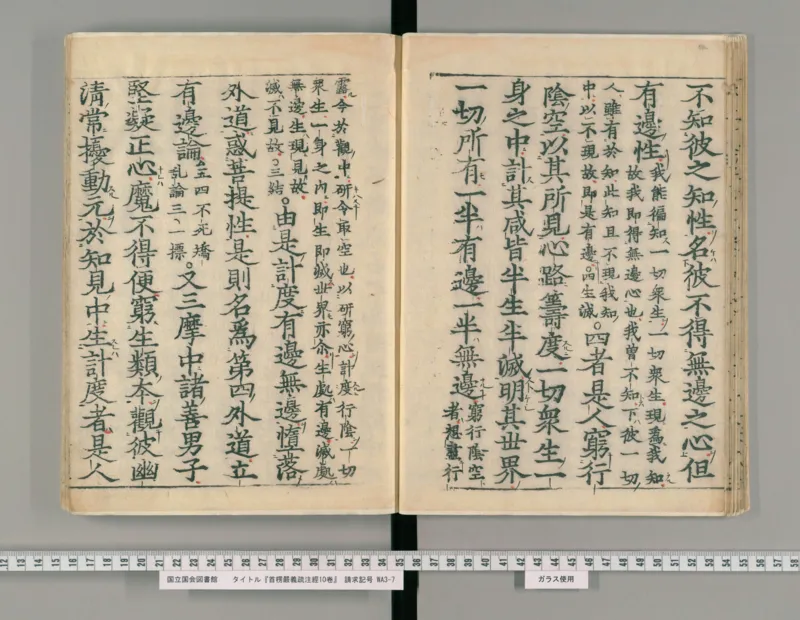 不知彼之知性名彼不得無邊之心但
有邊性
我能徧知一切衆生一切衆生現爲我知
故我即得無邊心也我曽不知下彼一切
人雖有於知此知且不現我知
中以不現故即是有邊四生滅
四者是人窮行
陰空以其所見心路籌度一切衆生一
身之中計其咸皆半生半滅明其世界
一切所有一半有邊一半無邊
窮行陰空
者想盡行
露今於觀中研令取空也以研窮心計度行陰一切
衆生一身之內即生即滅世界亦尒生處有邊滅處
無邊生現見故
滅不見故三結
由是計度有邊無邊惰落
外道惑菩提性是則名爲第四外道立
有邊論
五四不死矯
乱論三一標
又三摩中諸善男子
堅凝正心魔不得便窮生類本觀彼幽
清常擾動元於知見中生計度者是人
12 13 14 15 16 17 18 19 20 21 22 23 24 25 26 27 28 29 30 31 32 33 34 35 36 37 38 39 40 41 42 43 44 45 46 47 48 49 50 51 52 53 54 55 56 57 58
国立国会図書館 タイトル『首楞嚴義疏注經10巻』 請求記号 WA3-7
ガラス使用